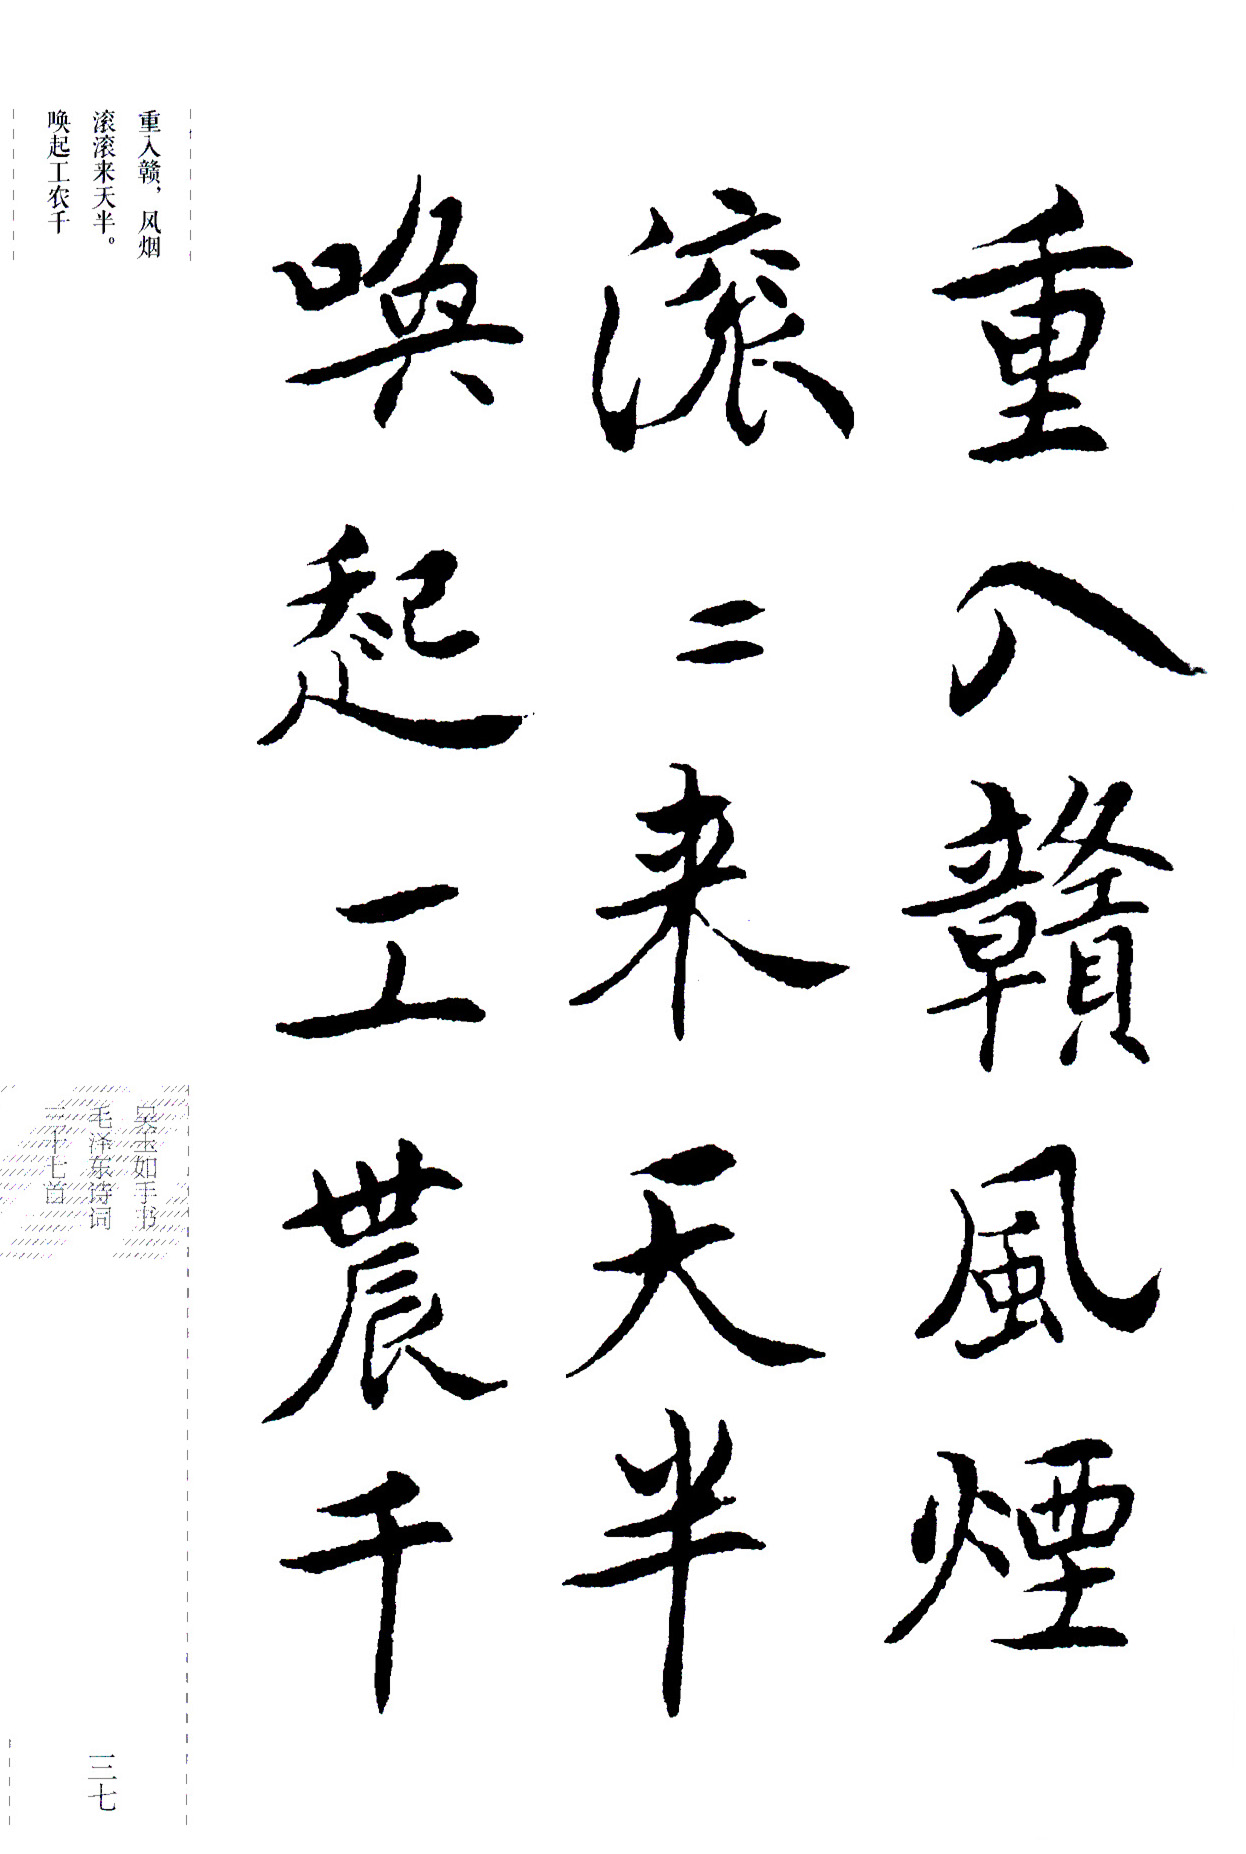 重入贛風煙
滚〻来天半
喚起工農千
重入赣，风烟
滚滚来天半。
唤起工农千
吴玉如手书
毛泽东诗词
三十七首
三七